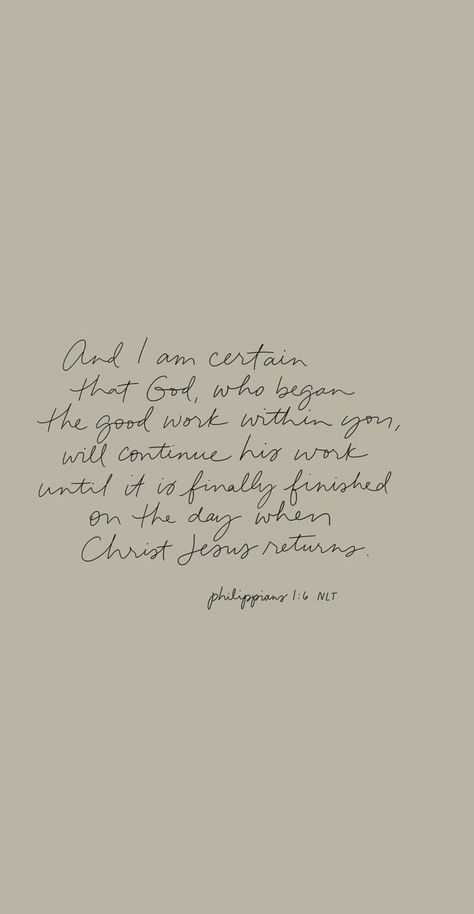 And I am certain
that God, who began
the good work within you,
will continue his work
until it is finally finished
on the day when
Christ Jesus returns.
philippians 1:6 NLT